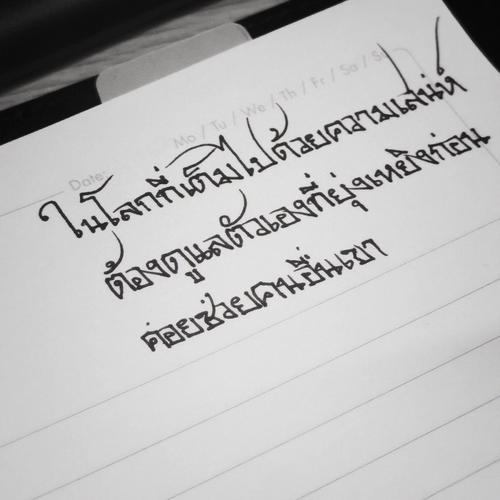 Mo / Tu / We / Th / Fr / Sa / Su
Date:
ในโลกที่เต็มไปด้วยความเสน่ห์
ต้องดูแลตัวเองที่ยุ่งเหยิงก่อน
ค่อยช่วยคนอื่นเขา